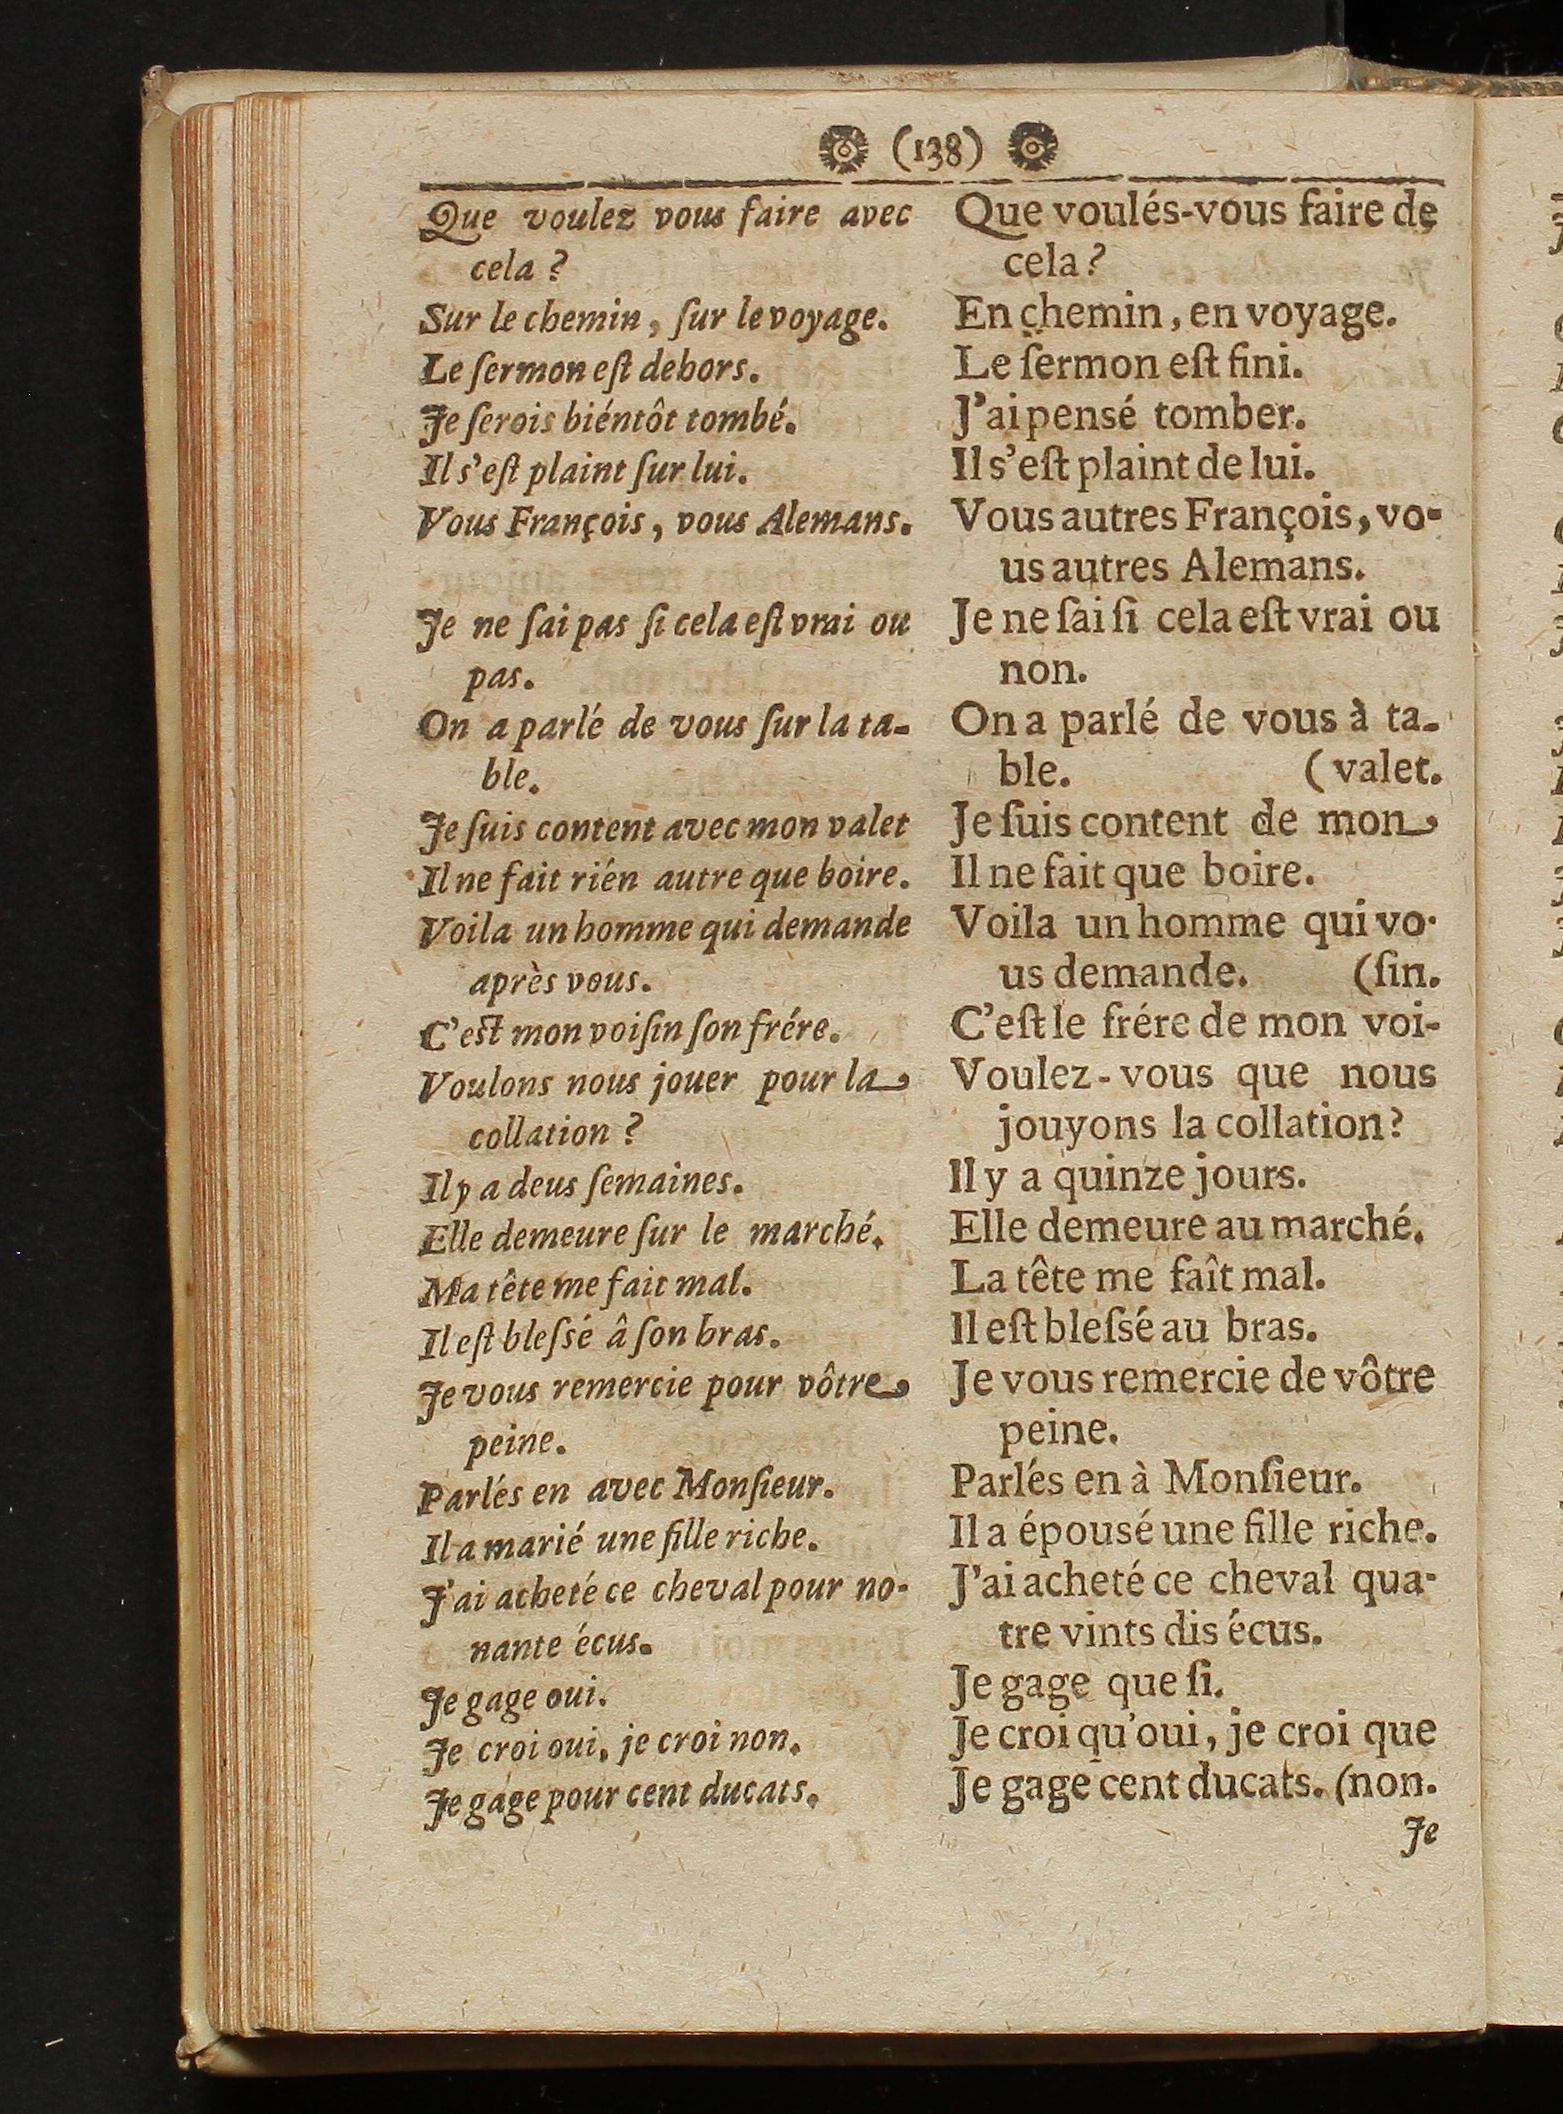 (138)
Que voulez vous faire avec
cela ?
Sur le chemin, ſur le voyage.
Le ſermon eſt dehors.
Je ſerois biéntôt tombé.
Il s'eſt plaint ſur lui.
Vous François, vous Alemans.
Je ne ſai pas ſi cela eſt vrai ou
pas.
On a parlé de vous ſur la ta-
ble.
Je ſuis content avec mon valet
Il ne fait rién autre que boire.
Voila un homme qui demande
après vous.
C'eſt mon voiſin ſon frére.
Voulons nous jouer pour la
collation ?
Il y a deus ſemaines.
Elle demeure ſur le marché.
Ma tête me fait mal.
Il eſt bleſsé â ſon bras.
Je vous remercie pour vôtre
peine.
Parlés en avec Monſieur.
Il a marié une fille riche.
J'ai acheté ce cheval pour no-
nante écus.
Je gage oui.
Je croi oui, je croi non.
Je gage pour cent ducats.
Que voulés-vous faire de
cela ?
En chemin, en voyage.
Le ſermon eſt fini.
J'ai pensé tomber.
Il s'eſt plaint de lui.
Vous autres François, vo-
us autres Alemans.
Je ne ſai ſi cela eſt vrai ou
non.
On a parlé de vous à ta-
ble. (valet.
Je ſuis content de mon
Il ne fait que boire.
Voila un homme qui vo-
us demande. (ſin.
C'eſt le frére de mon voi-
Voulez-vous que nous
jouyons la collation ?
Il y a quinze jours.
Elle demeure au marché.
La tête me faît mal.
Il eſt bleſsé au bras.
Je vous remercie de vôtre
peine.
Parlés en à Monſieur.
Il a épousé une fille riche.
J'ai acheté ce cheval qua-
tre vints dis écus.
Je gage que ſi.
Je croi qu'oui, je croi que
Je gage cent ducats. (non.
Je